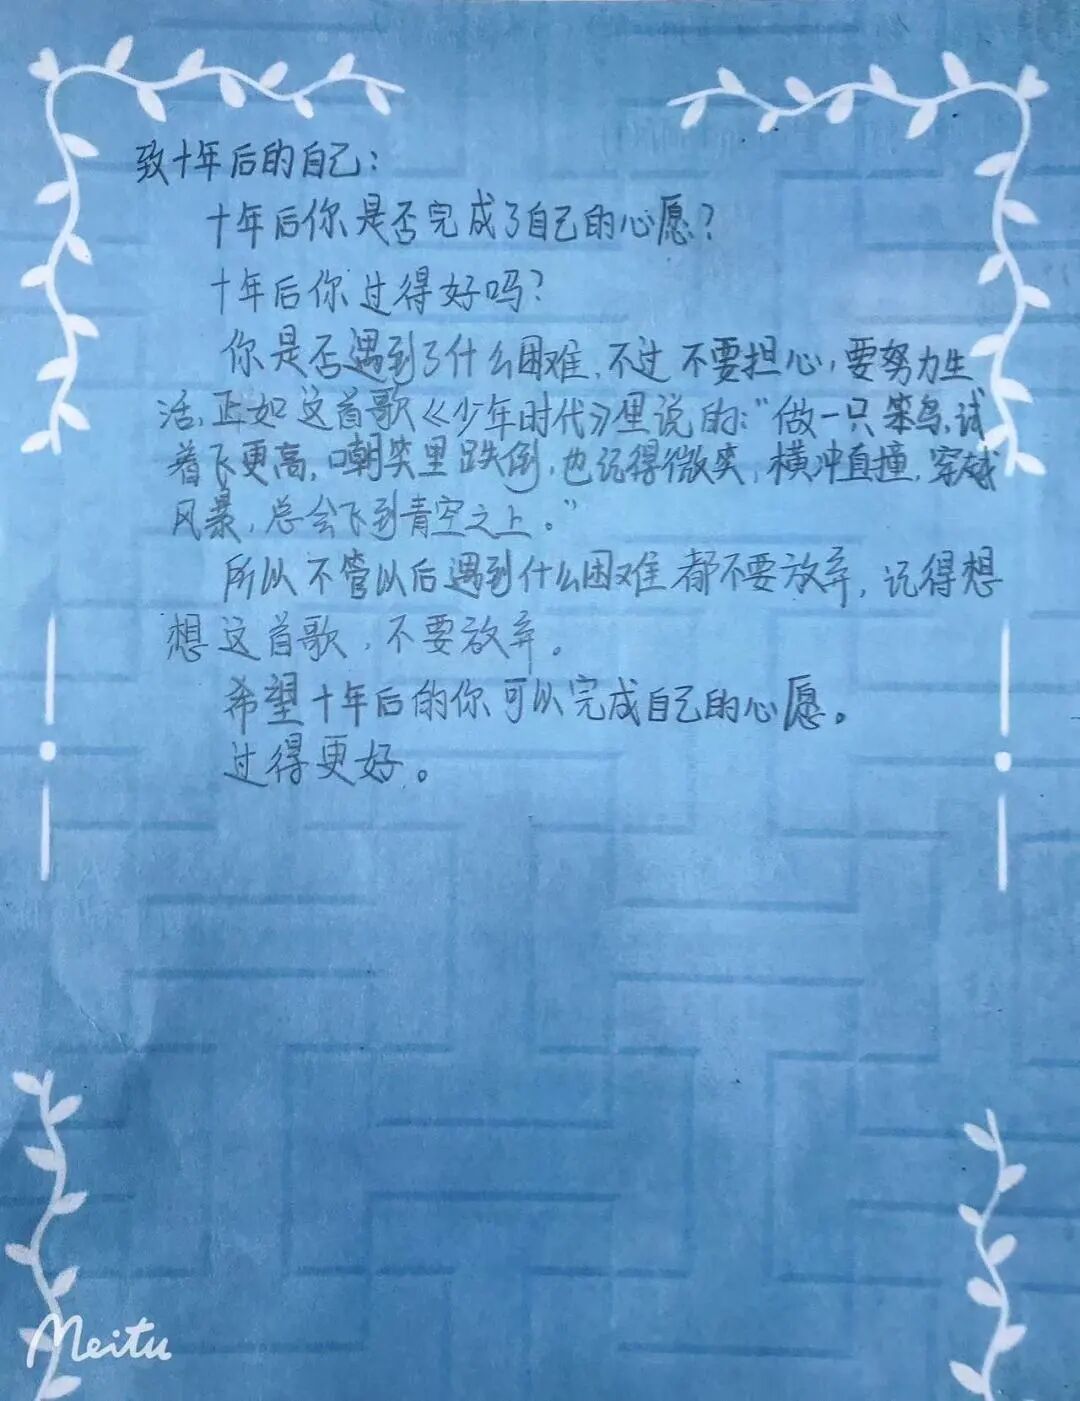 致十年后的自己：
十年后你是否完成了自己的心愿？
十年后你过得好吗？
你是否遇到了什么困难，不过不要担心，要努力生
活，正如这首歌《少年时代》里说的：“做一只笨鸟，试
着飞更高，嘲笑里跌倒，也记得微笑，横冲直撞，穿越
风暴，总会飞到青空之上。”
所以不管以后遇到什么困难都不要放弃，记得想
想这首歌，不要放弃。
希望十年后的你可以完成自己的心愿。
过得更好。
Meitu